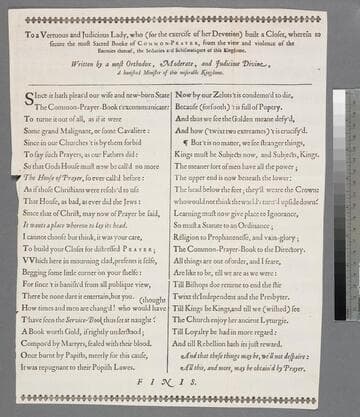 To a Vertuous and Judicious Lady, who (for the exercise of her Devotion) built a Closet, wherein to
secure the most Sacred Booke of COMMON-PRAYER, from the view and violence of the
Enemies thereof, the Sectaries and Schismatiques of this Kingdome.
Written by a most Orthodox, Moderate, and Judicious Divine,
A banished Minister of this miserable Kingdome.
SInce it hath pleas'd our wise and new-born State
The Common-Prayer-Book t'excommunicate:
To turne it out of all, as if it were
Some grand Malignant, or some Cavaliere:
Since in our Churches 't is by them forbid
To say such Prayers, as our Fathers did:
So that Gods House must now be call'd no more
The House of Prayer, so ever call'd before:
As if those Christians were resolv'd to use
That House, as bad, as ever did the Jews:
Since that of Christ, may now of Prayer be said,
It wants a place whereon to lay its head.
I cannot choose but think, it was your care,
To build your Closet for distressed PRAYER;
VVhich here in mourning clad, presents it selfe,
Begging some little corner on your shelfe:
For since 't is banish'd from all publique view,
There be none dare it entertain, but you. (thought
How times and men are chang'd! who would have
T'have seen the Service-Book thus set at naught?
A Book worth Gold, if rightly understood;
Compos'd by Martyrs, sealed with their blood.
Once burnt by Papists, meerly for this cause,
It was repugnant to their Popish Lawes.
Now by our Zelots 't is condemn'd to die,
Because (forsooth) 't is full of Popery.
And thus we see the Golden meane defy'd,
And how ('twixt two extreames) 't is crucify'd.
¶ But 't is no matter, we see stranger things,
Kings must be Subjects now, and Subjects, Kings.
The meaner sort of men have all the power;
The upper end is now beneath the lower:
The head below the feet; they'll weare the Crown:
who would not think the world's turn'd upside down!
Learning must now give place to Ignorance,
So must a Statute to an Ordinance;
Religion to Prophanenesse, and vain-glory;
The Common-Prayer-Book to the Directory.
All things are out of order, and I feare,
Are like to be, till we are as we were:
Till Bishops doe returne to end the strife
Twixt th'Independent and the Presbyter.
Till Kings be Kings, and till we (wished) see
The Church enjoy her ancient Lyturgie.
Till Loyalty be had in more regard:
And till Rebellion hath its just reward.
And that these things may be, we'll not despaire:
All this, and more, may be obtain'd by Prayer.
FINIS.